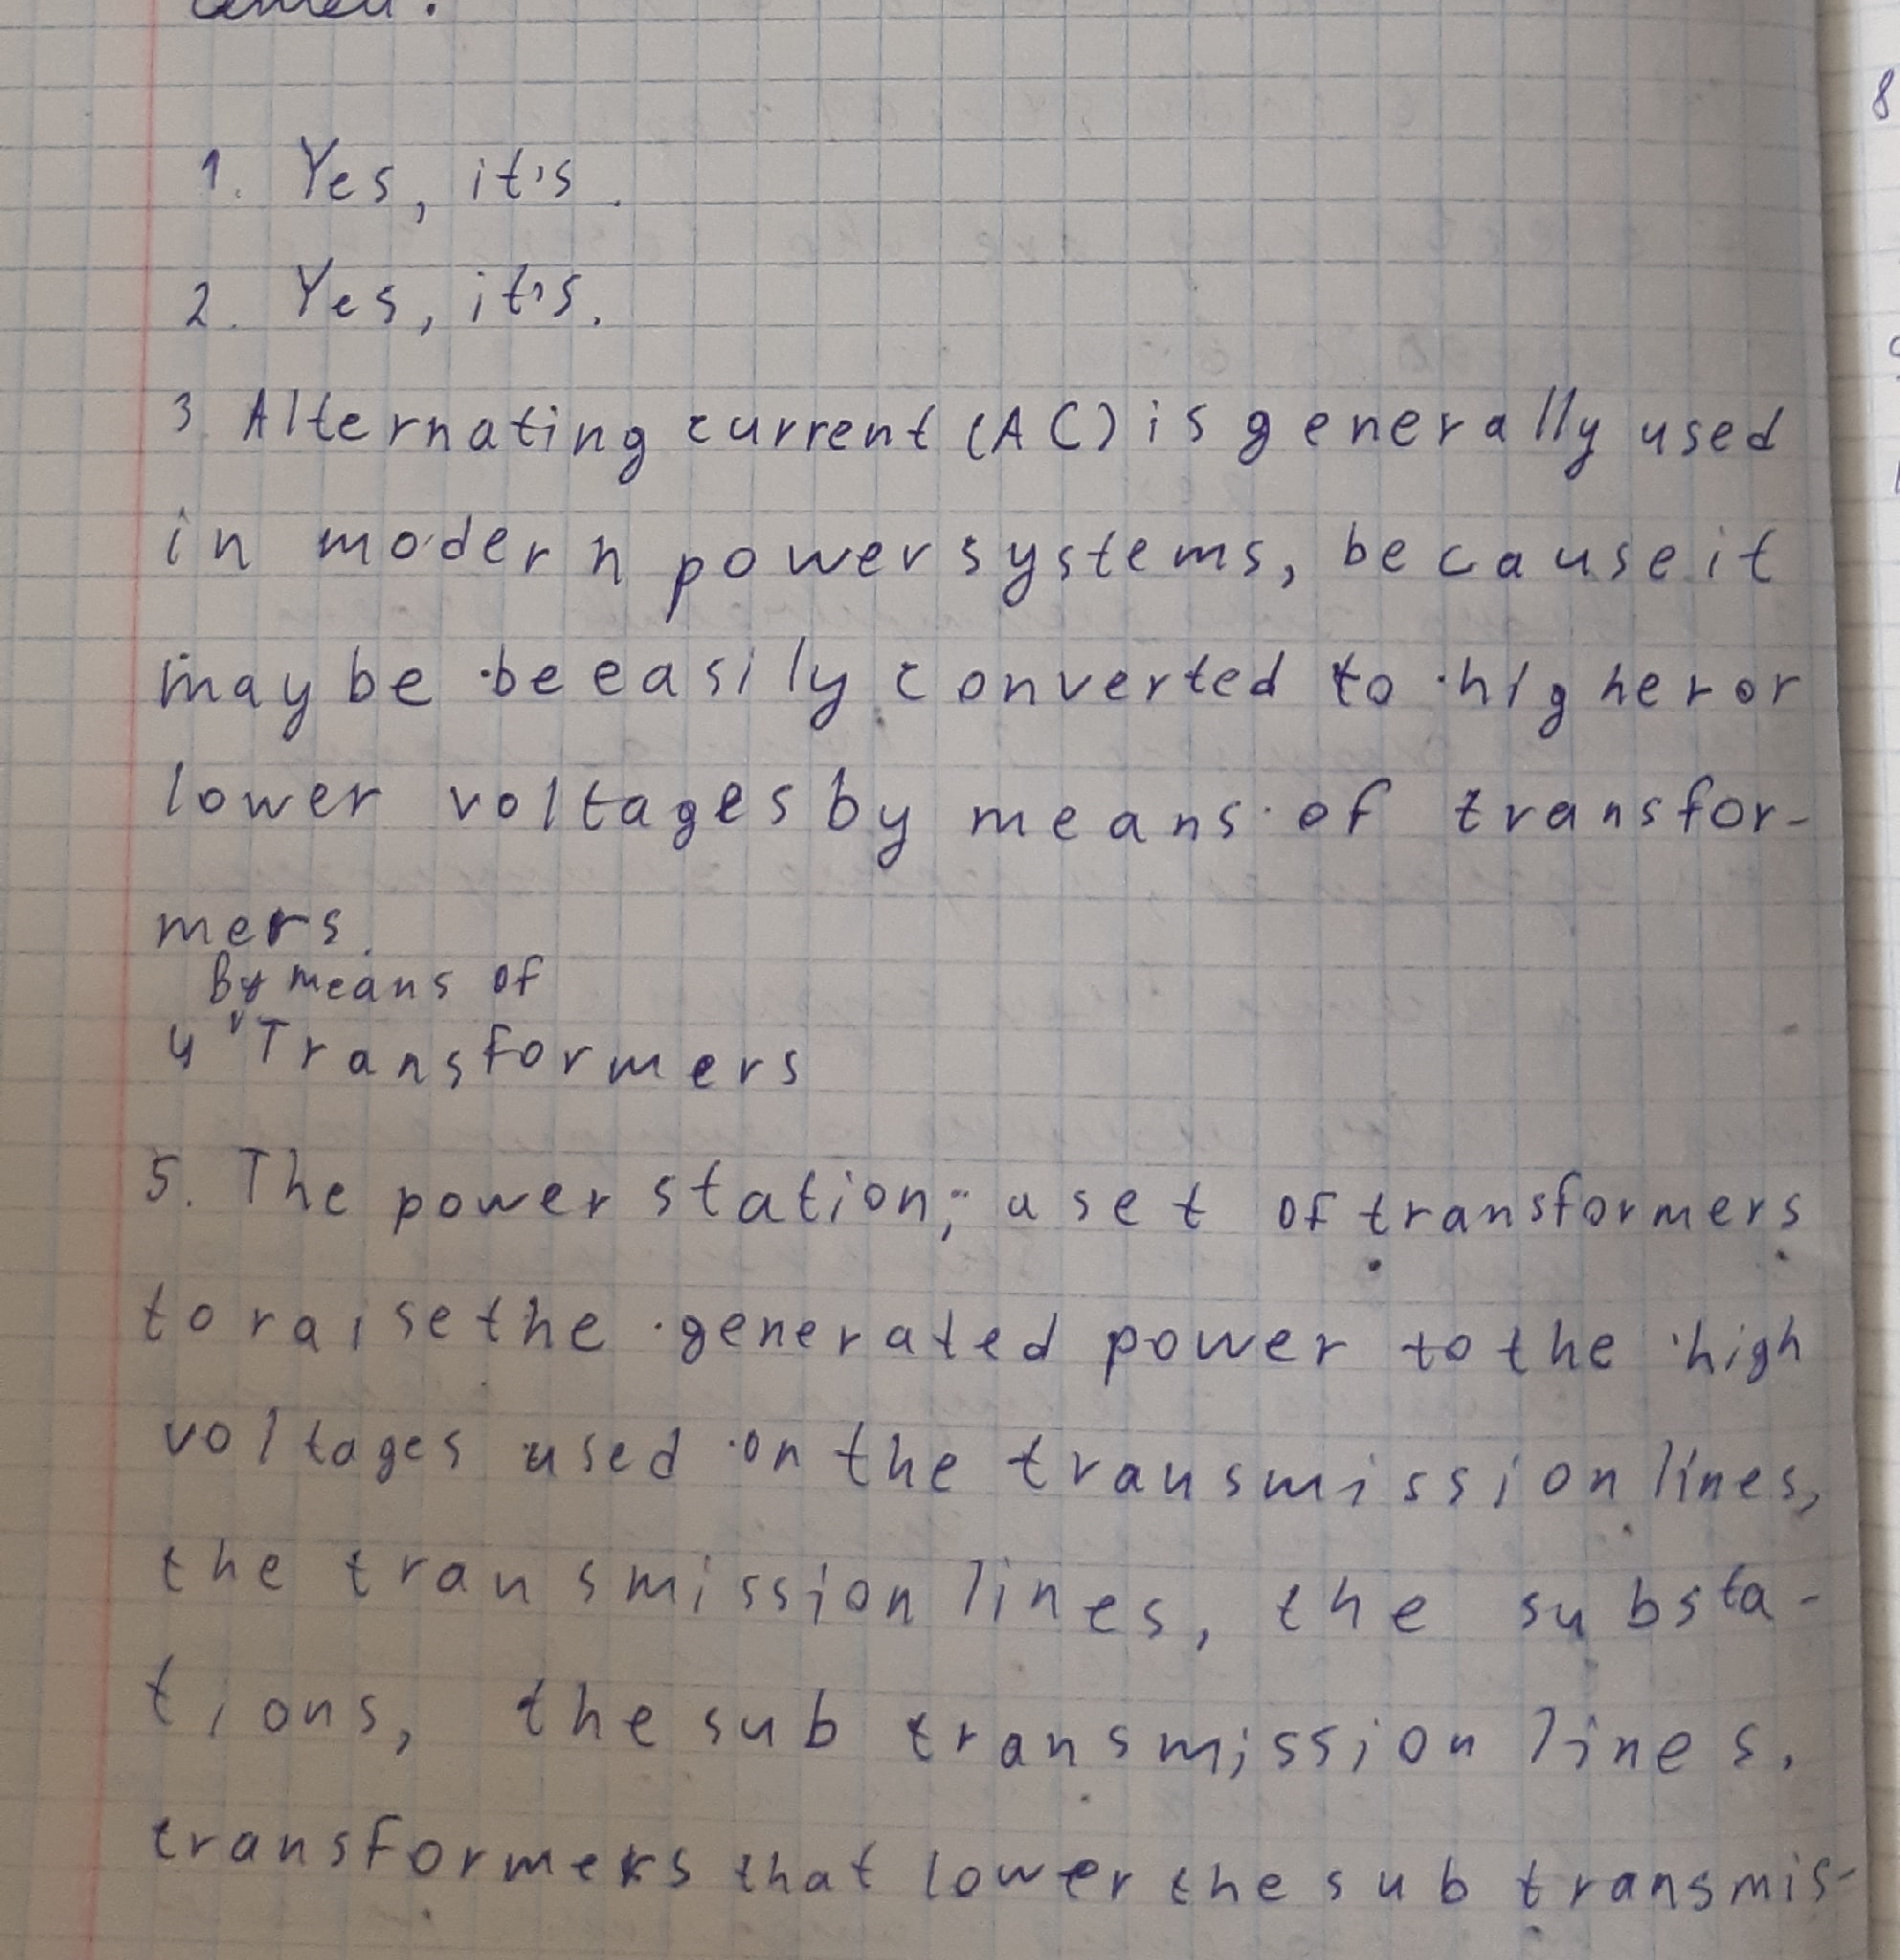 1. Yes, it's.
2. Yes, it's.
3. Alternating current (AC) is generally used
in modern power systems, because it
may be be easily converted to higher or
lower voltages by means of transfor-
mers.
By means of
4 Transformers
5. The power station, a set of transformers
to raise the generated power to the high
voltages used on the transmission lines,
the transmission lines, the substa-
tions, the sub transmission lines,
transformers that lower the sub transmis-
8